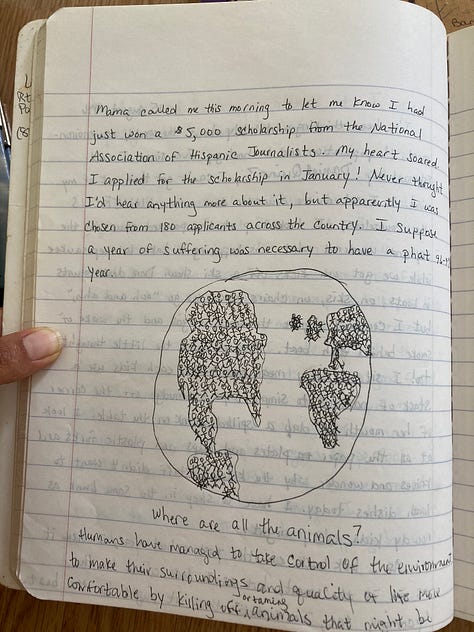 Mama called me this morning to let me know I had
just won a $5,000 scholarship from the National
Association of Hispanic Journalists. My heart soared.
I applied for the scholarship in January! Never thought
I'd hear anything more about it, but apparently I was
chosen from 180 applicants across the country. I suppose
a year of suffering was necessary to have a phat 96-97
year.
Where are all the animals?
Humans have managed to take control of the environment
to make their surroundings and quality of life more
comfortable by killing off or taming animals that might be